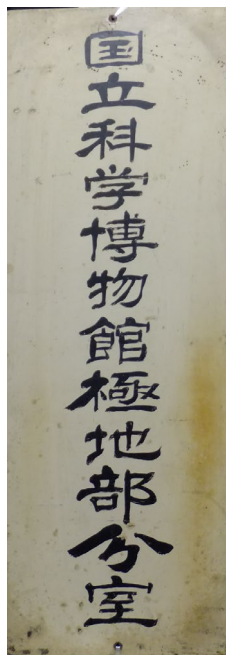 国立科学博物館極地部分室